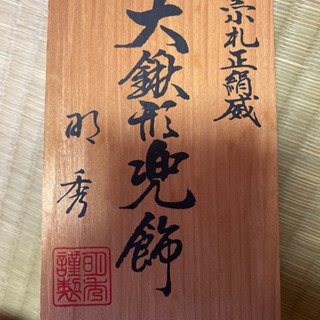 札正絹威
大鍬形兜飾
明秀
明秀
謹製